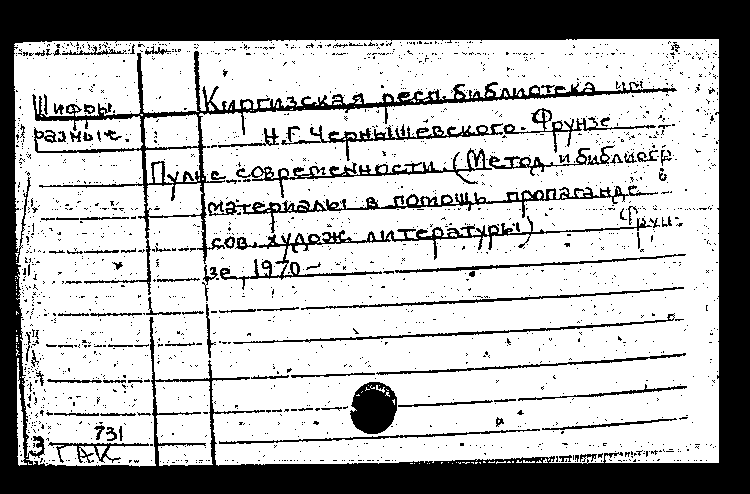 Шифры
разные.
Киргизская респ. библиотека им.
Н.Г. Чернышевского. Фрунзе
Пульс современности. (Метод. и библиогр.
материалы в помощь пропаганде
сов. худож. литературы). Фрун-
зе, 1970 –
731
ГАК